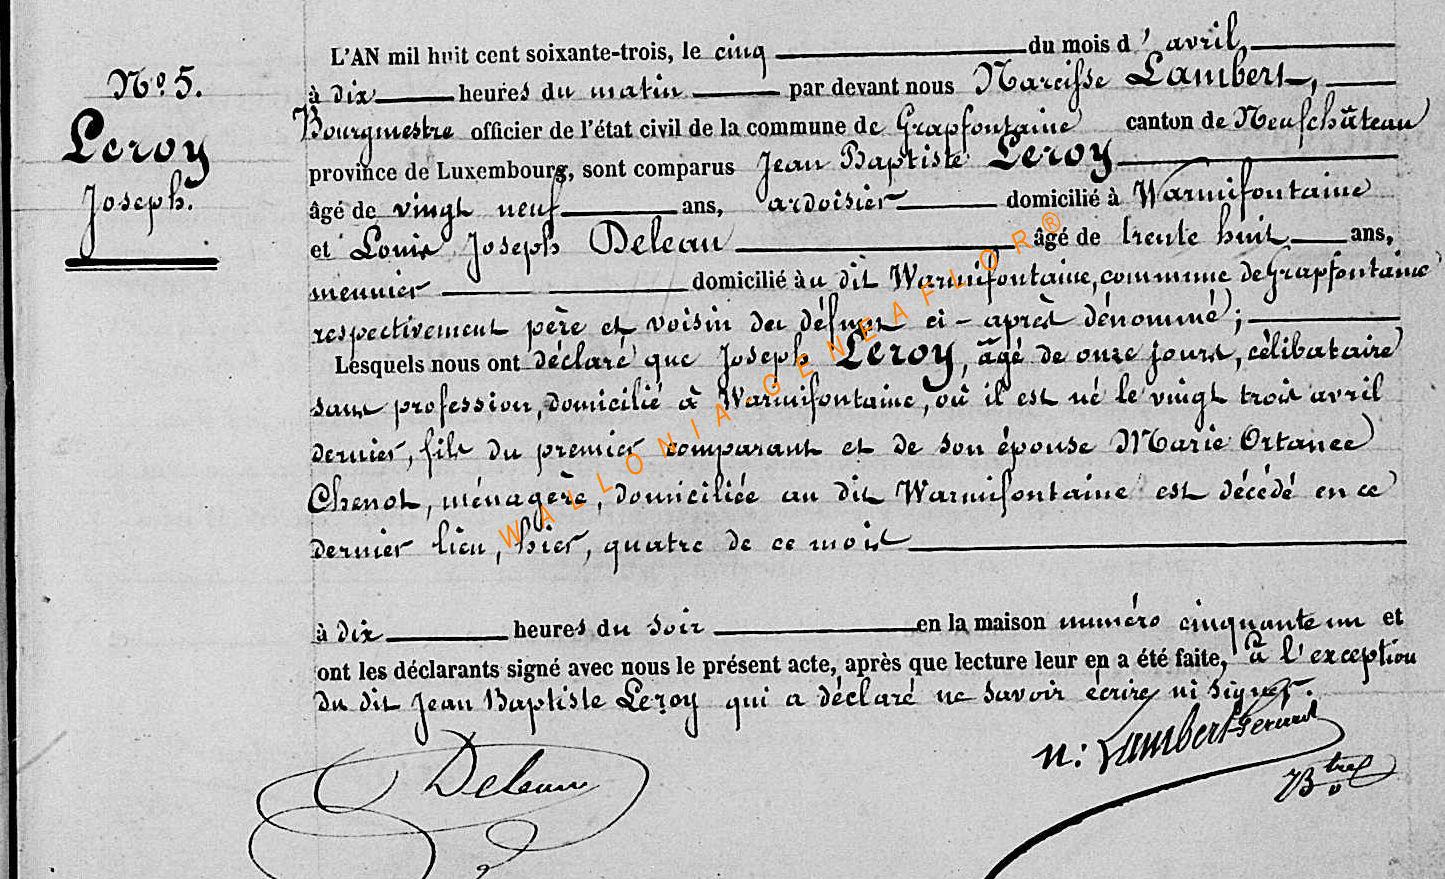 N.º 5.
Leroy
Joseph.
L'AN mil huit cent soixante-trois, le cinq du mois d' avril,
à dix heures du matin par devant nous Narcisse Lambert,
Bourgmestre officier de l'état civil de la commune de Grapfontaine canton de Neufchâteau
province de Luxembourg, sont comparus Jean Baptiste Leroy
âgé de vingt neuf ans, ardoisier domicilié à Warmifontaine
et Louis Joseph Deleau âgé de trente huit ans,
meunier domicilié à u dit Warmifontaine, commune de Grapfontaine
respectivement père et voisin du défunt ci-après dénommé;
Lesquels nous ont déclaré que Joseph Leroy, âgé de onze jours, célibataire
sans profession, domicilié à Warmifontaine, où il est né le vingt trois avril
dernier, fils du premier comparant et de son épouse Marie Ortance
Chenot, ménagère, domiciliée au dit Warmifontaine est décédé en ce
dernier lieu, hier, quatre de ce mois
à dix heures du soir en la maison numéro cinquante un et
ont les déclarants signé avec nous le présent acte, après que lecture leur en a été faite, à l'exception
du dit Jean Baptiste Leroy qui a déclaré ne savoir écrire ni signer.
Deleau
N: Lambert
Btre
WALLONIA GENEAFLOR®